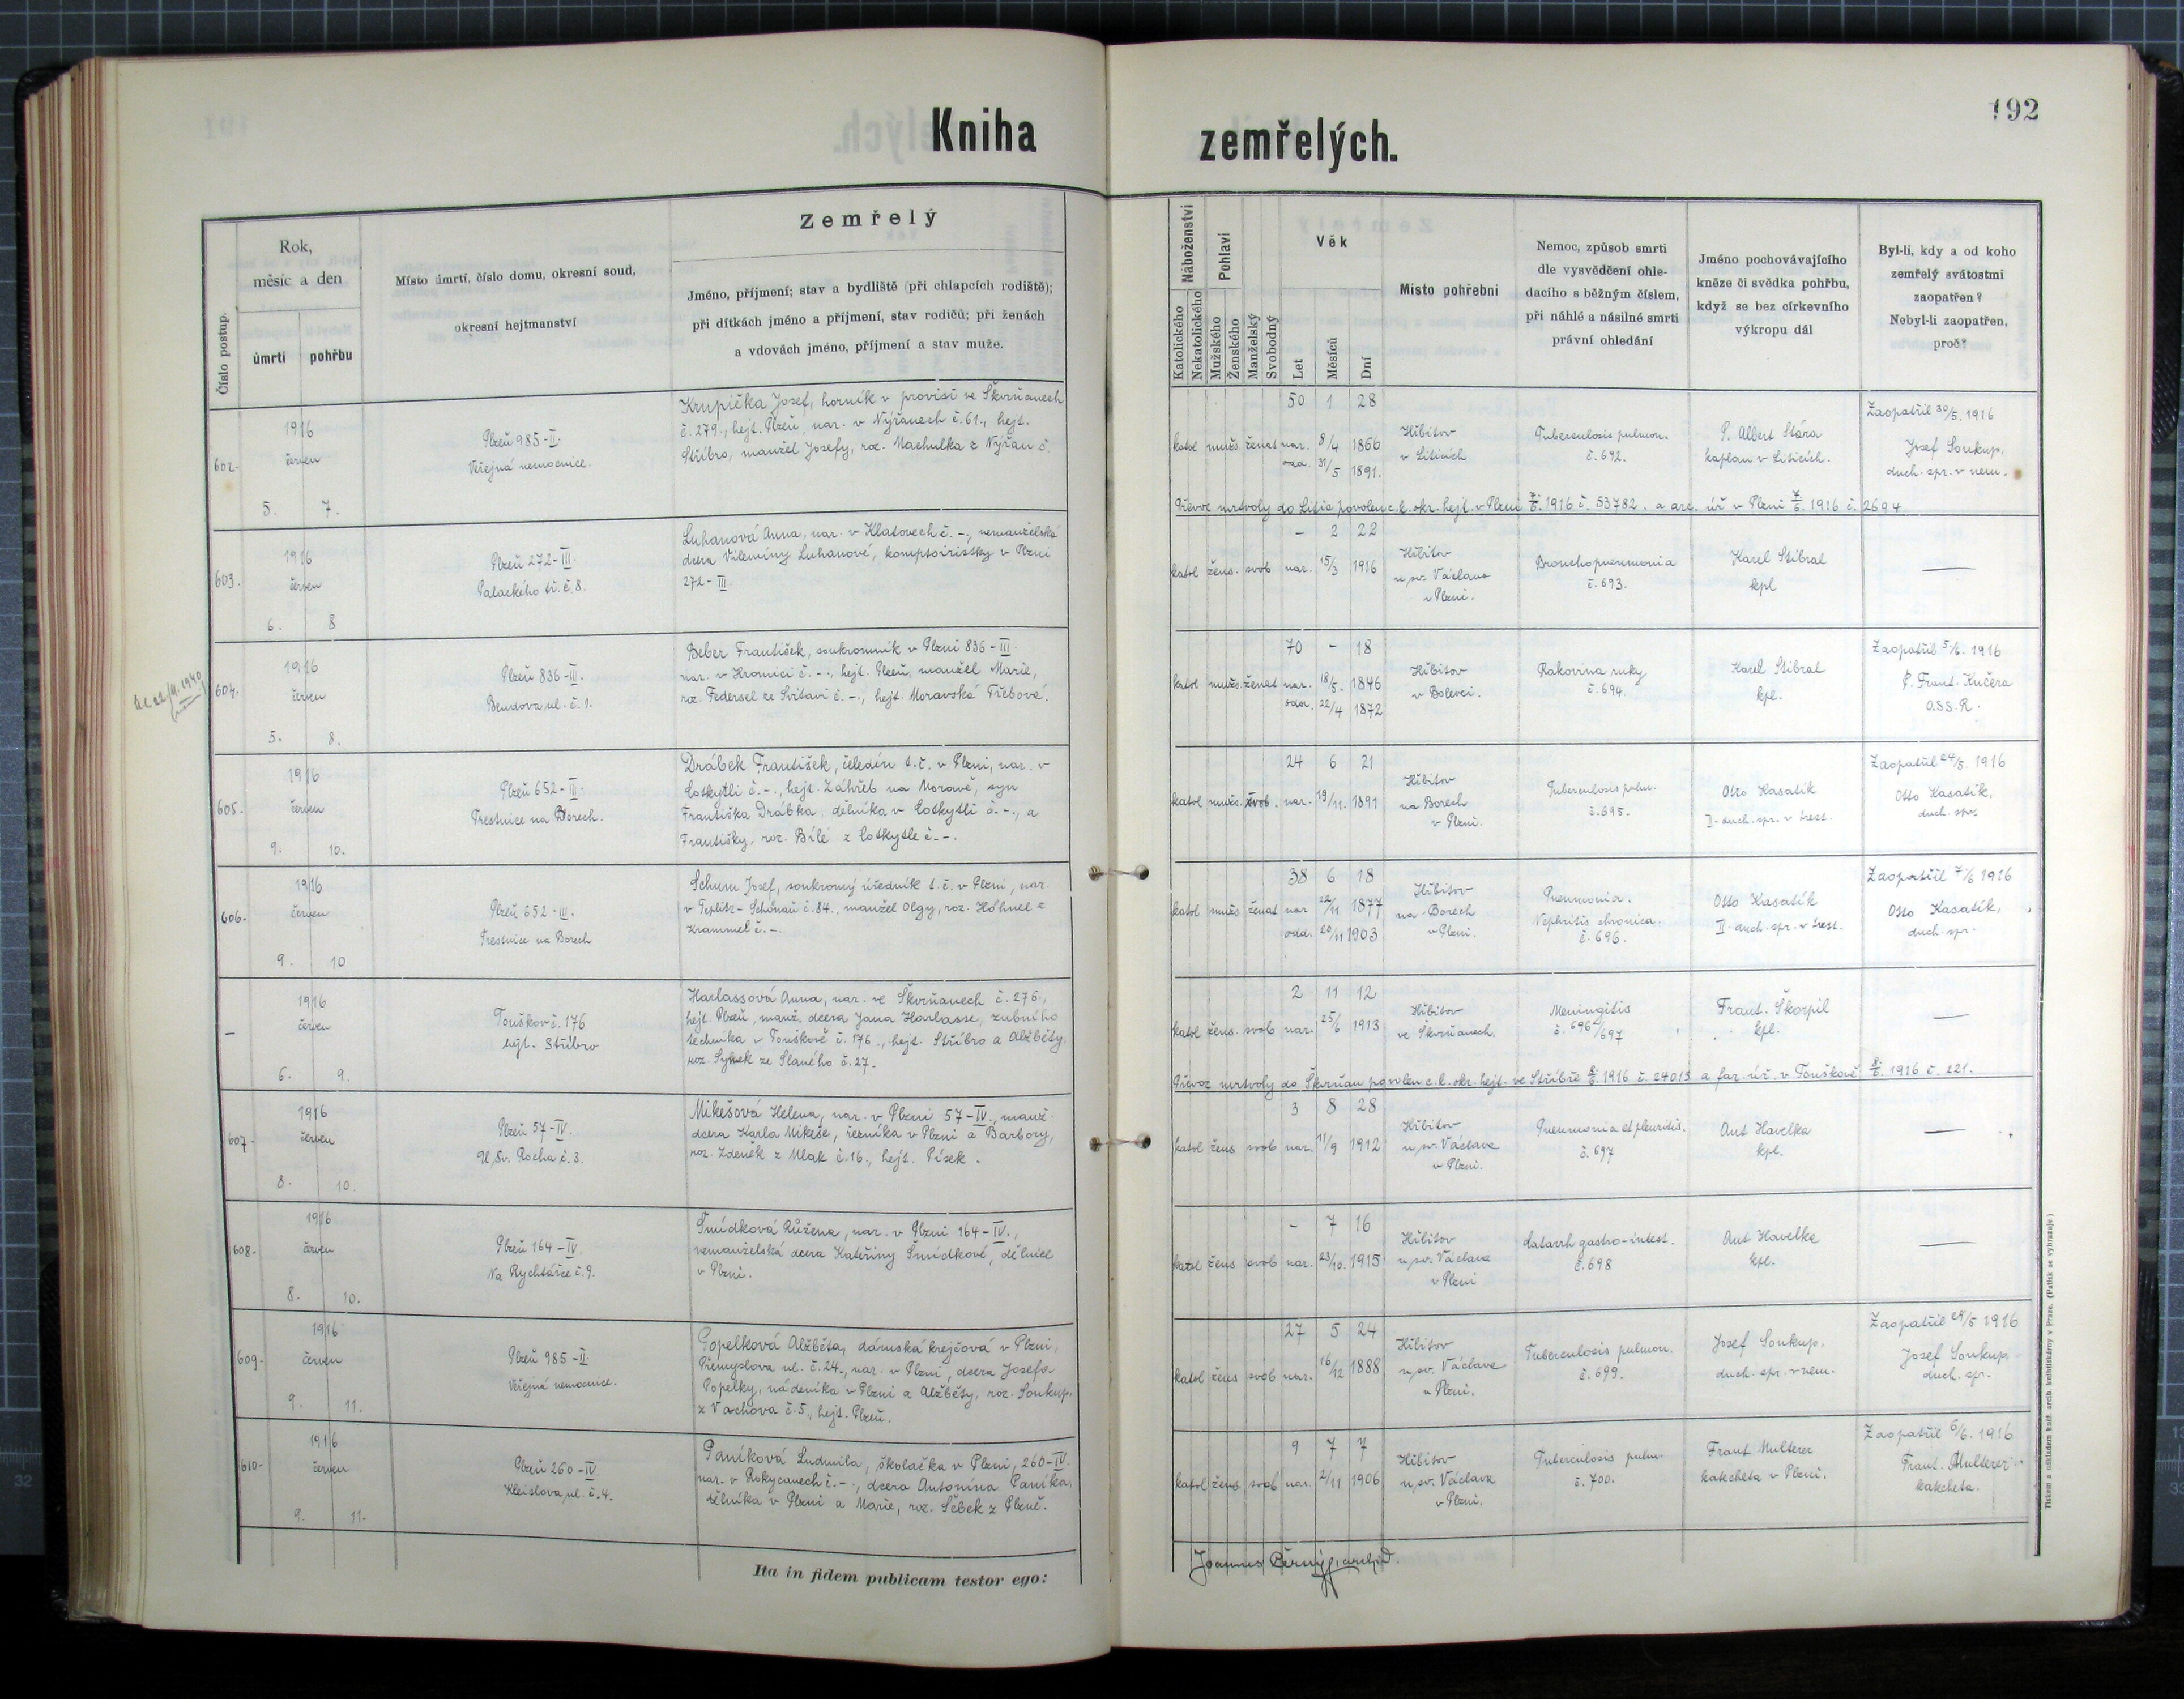 192
Kniha zemřelých.
Číslo postup.
Rok,
měsíc a den
úmrtí
pohřbu
Místo úmrtí, číslo domu, okresní soud,
okresní hejtmanství
Zemřelý
Jméno, příjmení; stav a bydliště (při chlapcích rodiště);
při dítkách jméno a příjmení, stav rodičů; při ženách
a vdovách jméno, příjmení a stav muže.
Náboženství
Katolického
Nekatolického
Pohlaví
Mužského
Ženského
Manželský
Svobodný
Věk
Let
Měsíců
Dní
Místo pohřební
Nemoc, způsob smrti
dle vysvědčení ohle-
dacího s běžným číslem,
při náhlé a násilné smrti
právní ohledání
Jméno pochovávajícího
kněze či svědka pohřbu,
když se bez církevního
výkropu dál
Byl-li, kdy a od koho
zemřelý svátostmi
zaopatřen?
Nebyl-li zaopatřen,
proč?
602.
1916
červen
5. 7.
Plzeň 985-II.
Veřejná nemocnice.
Krupička Josef, horník v provisi ve Škvrňanech
č. 279., hejt. Plzeň, nar. v Nýřanech č. 61., hejt.
Stříbro, manžel Josefy, roz. Machulka z Nýřan č.
50 1 28
katol mužs. ženat nar. 8/4 1866
odd. 31/5 1891.
Hřbitov
v Liticích
Tuberculosis pulmon.
č. 692.
P. Albert Stára
kaplan v Liticích.
Zaopatřil 30/5. 1916
Josef Soukup,
duch. spr. v nem.
Převoz mrtvoly do Litic povolen c.k. okr. hejt. v Plzni 7./6. 1916 č. 53782. a arc. úř v Plzni 7/6. 1916 č. 2694
603.
1916
červen
6. 8
Plzeň 272-III.
Palackého tř. č. 8.
Luhanová Anna, nar. v Klatovech č. -, nemanželská
dcera Vilemíny Luhanové, komptoiristky v Plzni
272-III.
- 2 22
katol žens. svob nar. 15/3 1916
Hřbitov
u sv. Václava
v Plzni.
Bronchopneumonia
č. 693.
Karel Stibral
kpl
604.
1916
červen
5. 8.
Plzeň 836-III.
Bendova ul. č. 1.
Beber František, soukromník v Plzni 836-III.
nar. v Hromici č. -., hejt. Plzeň, manžel Marie,
roz. Federsel ze Svitavi č. -., hejt. Moravská Třebová.
70 - 18
katol mužs. ženat nar. 18/5. 1846
odd. 22/4 1872
Hřbitov
v Bolevci.
Rakovina ruky
č. 694.
Karel Stibral
kpl.
Zaopatřil 5/6. 1916
P. Frant. Kučera
O.SS.R.
605.
1916
červen
9. 10.
Plzeň 652-III.
Trestnice na Borech.
Drábek František, čeledín t.č. v Plzni, nar. v
Cotkytli č. -., hejt. Záhřeb na Moravě, syn
Františka Drábka, dělníka v Cotkytli č. -., a
Františky, roz. Bílé z Cotkytle č. -.
24 6 21
katol mužs. svob. nar. 19/11. 1891
Hřbitov
na Borech
v Plzni.
Tuberculosis pulm.
č. 695.
Otto Kasatík
II. duch. spr. v trest.
Zaopatřil 24/5. 1916
Otto Kasatík,
duch. spr.
606.
1916
červen
9. 10
Plzeň 652-III.
Trestnice na Borech
Schum Josef, soukromý úředník t.č. v Plzni, nar.
v Teplitz-Schönau č. 84., manžel Olgy, roz. Höhnel z
Krammel č. -.
38 6 18
katol mužs ženat nar 22/11 1877
odd. 20/11 1903
Hřbitov
na Borech
v Plzni.
Pneumonia.
Nephritis chronica.
č. 696.
Otto Kasatík
II. duch. spr. v trest.
Zaopatřil 7/6 1916
Otto Kasatík,
duch. spr.
–
1916
červen
6. 9.
Touškov č. 176
hejt. Stříbro
Harlassová Anna, nar. ve Škvrňanech č. 276.,
hejt. Plzeň, manž. dcera Jana Harlasse, zubního
technika v Touškově č. 176., hejt. Stříbro a Alžběty
roz. Synek ze Slaného č. 27.
2 11 12
katol žens. svob nar. 25/6 1913
Hřbitov
ve Škvrňanech.
Meningitis
č. 696/697
Frant. Škorpil
kpl.
Převoz mrtvoly do Škvrňan povolen c.k. okr. hejt. ve Stříbře 8./6. 1916 č. 24013 a far. úř. v Touškově 8./6. 1916 č. 221.
607.
1916
červen
8. 10.
Plzeň 57-IV.
U Sv. Rocha č. 3.
Mikešová Helena, nar. v Plzni 57-IV., manž.
dcera Karla Mikeše, řezníka v Plzni a Barbory,
roz. Zdeněk z Mlak č. 16., hejt. Písek.
3 8 28
katol žens svob nar. 11/9 1912
Hřbitov
u sv. Václava
v Plzni.
Pneumonia et pleuritis.
č. 697
Ant Havelka
kpl.
608.
1916
červen
8. 10.
Plzeň 164-IV.
Na Rychtářce č. 9.
Šmídková Růžena, nar. v Plzni 164-IV.,
nemanželská dcera Kateřiny Šmídkové, dělnice
v Plzni.
- 7 16
katol žens svob nar. 23/10. 1915
Hřbitov
u sv. Václava
v Plzni
Catarrh gastro-intest.
č. 698
Ant Havelka
kpl.
609.
1916
červen
9. 11.
Plzeň 985-II.
Veřejná nemocnice.
Popelková Alžběta, dámská krejčová v Plzni,
Přemyslova ul. č. 24., nar. v Plzni, dcera Josefa
Popelky, nádeníka v Plzni a Alžběty, roz. Soukup.
z Vachova č. 5., hejt. Plzeň.
27 5 24
katol žens svob nar. 16/12 1888
Hřbitov
u sv. Václava
v Plzni.
Tuberculosis pulmon.
č. 699.
Josef Soukup,
duch. spr. v nem.
Zaopatřil 29/5 1916
Josef Soukup
duch. spr.
610.
1916
červen
9. 11.
Plzeň 260-IV
Kleislova ul. č. 4.
Paníková Ludmila, školačka v Plzni, 260-IV.
nar. v Rokycanech č. -., dcera Antonína Paníka,
dělníka v Plzni a Marie, roz. Šebek z Plzně.
9 7 7
katol žens. svob nar. 2/11 1906
Hřbitov
u sv. Václava
v Plzni.
Tuberculosis pulm
č. 700.
Frant Multerer
katecheta v Plzni.
Zaopatřil 6/6. 1916
Frant. Multerer
katecheta.
Ita in fidem publicam testor ego:
Joannes Černý, archid.
Tiskem a nákladem kníž. arcib. knihtiskárny v Praze. (Patisk se vyhrazuje)